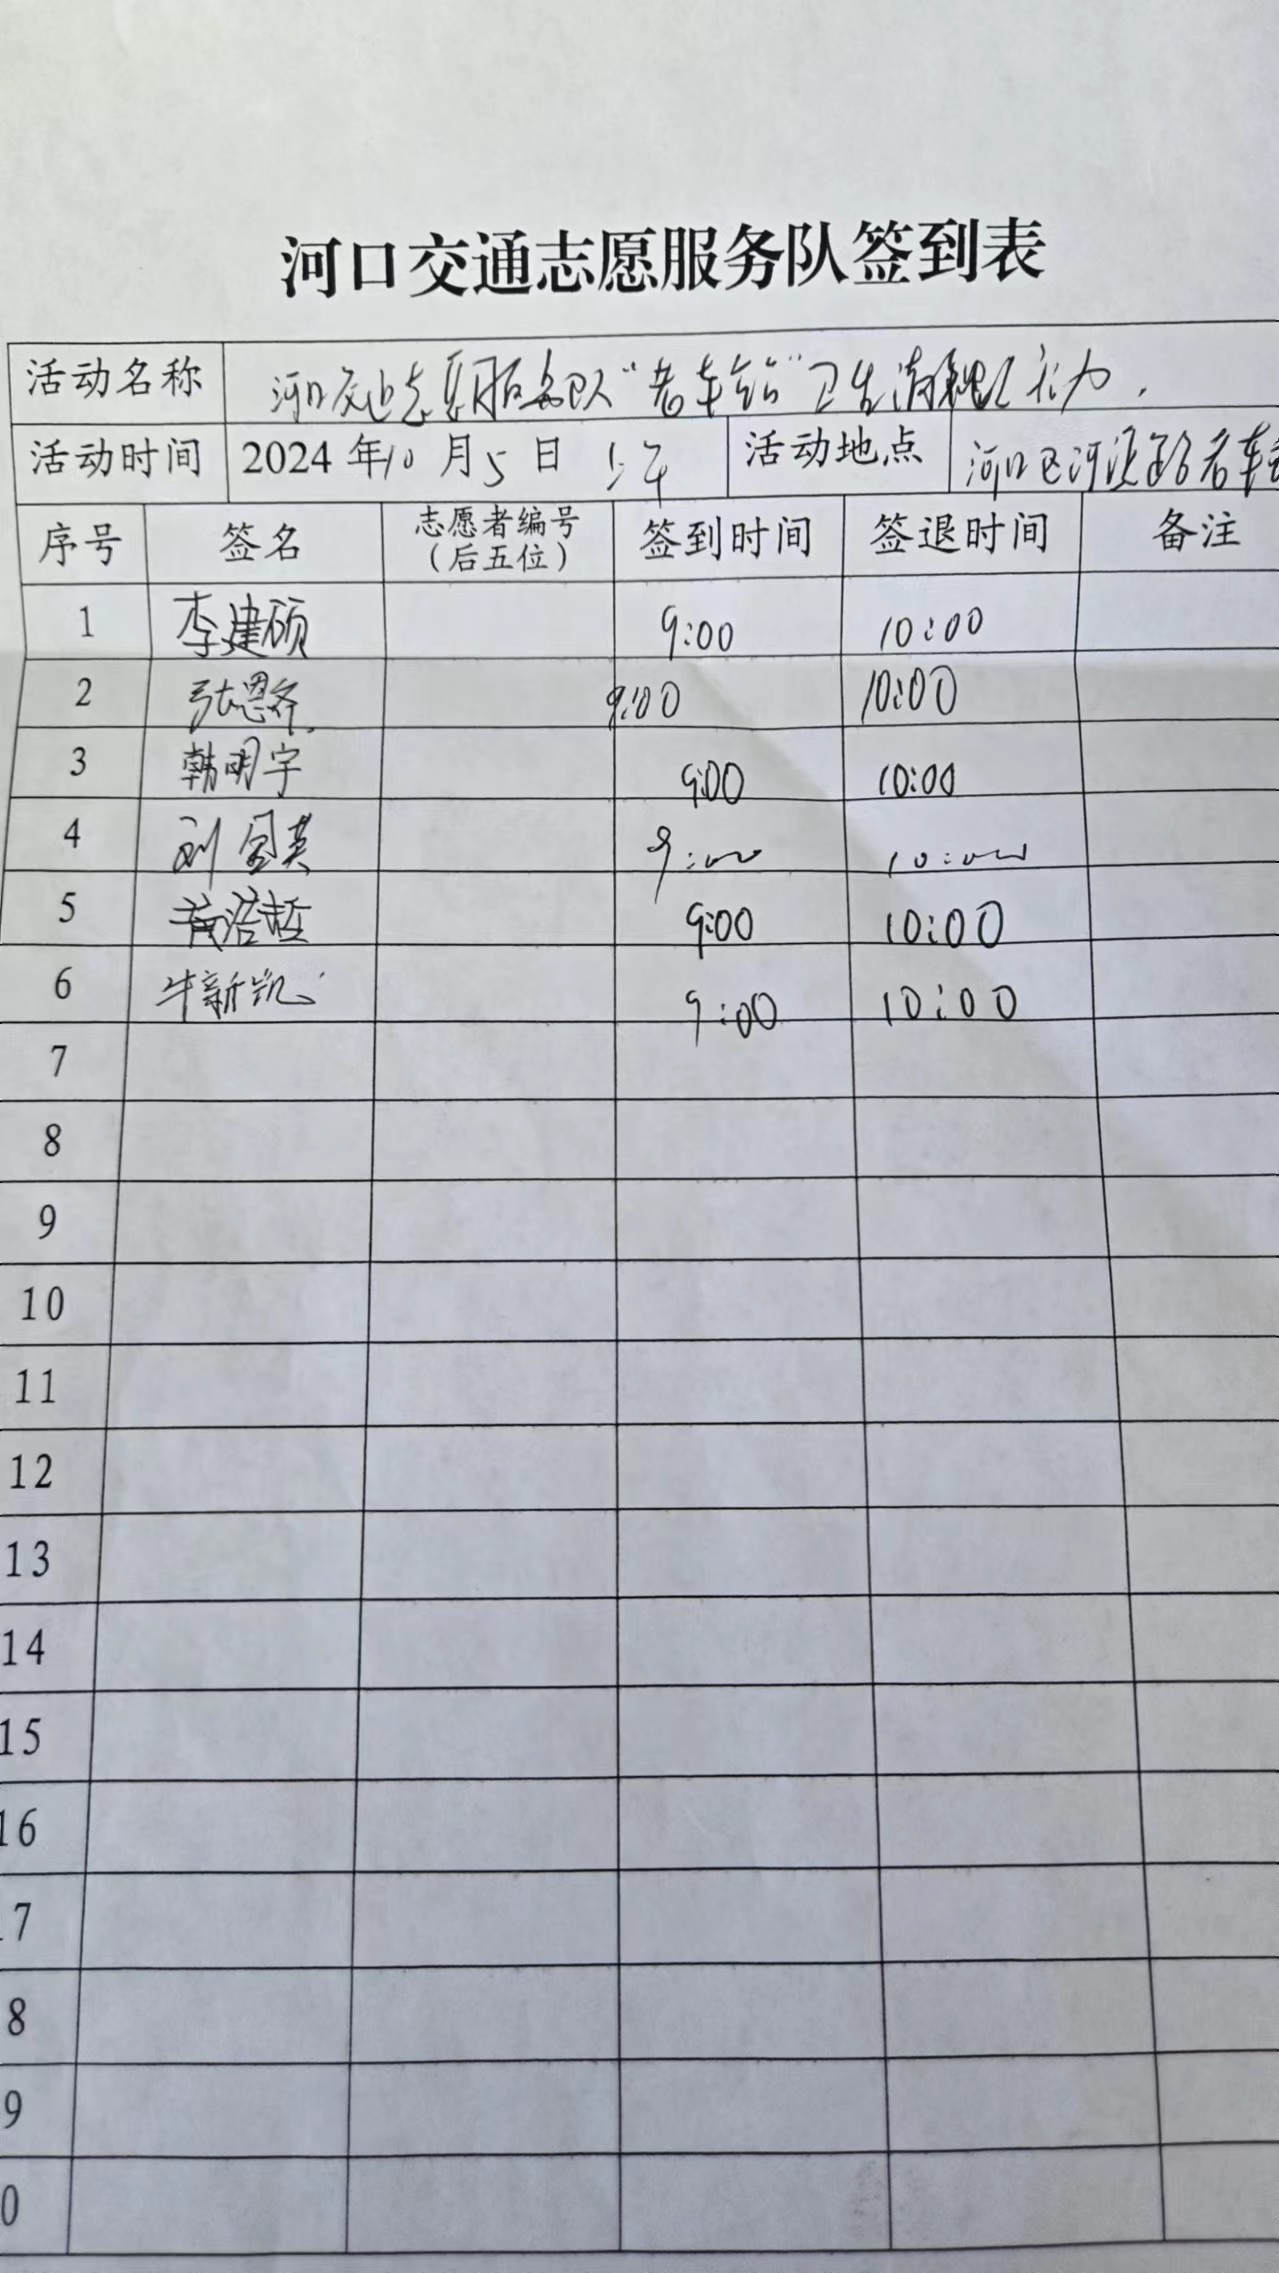 河口交通志愿服务队签到表
活动名称 河口交通志愿服务队"老车站"卫生清理活动.
活动时间 2024年10月5日 上午 活动地点 河口区河滨路老车
序号 签名 志愿者编号(后五位) 签到时间 签退时间 备注
1 李建硕 9:00 10:00
2 张恩齐 9:00 10:00
3 韩明宇 9:00 10:00
4 刘 英 9:00 10:00
5 浩哲 9:00 10:00
6 牛新凯 9:00 10:00
7
8
9
10
11
12
13
14
15
16
7
8
9
0